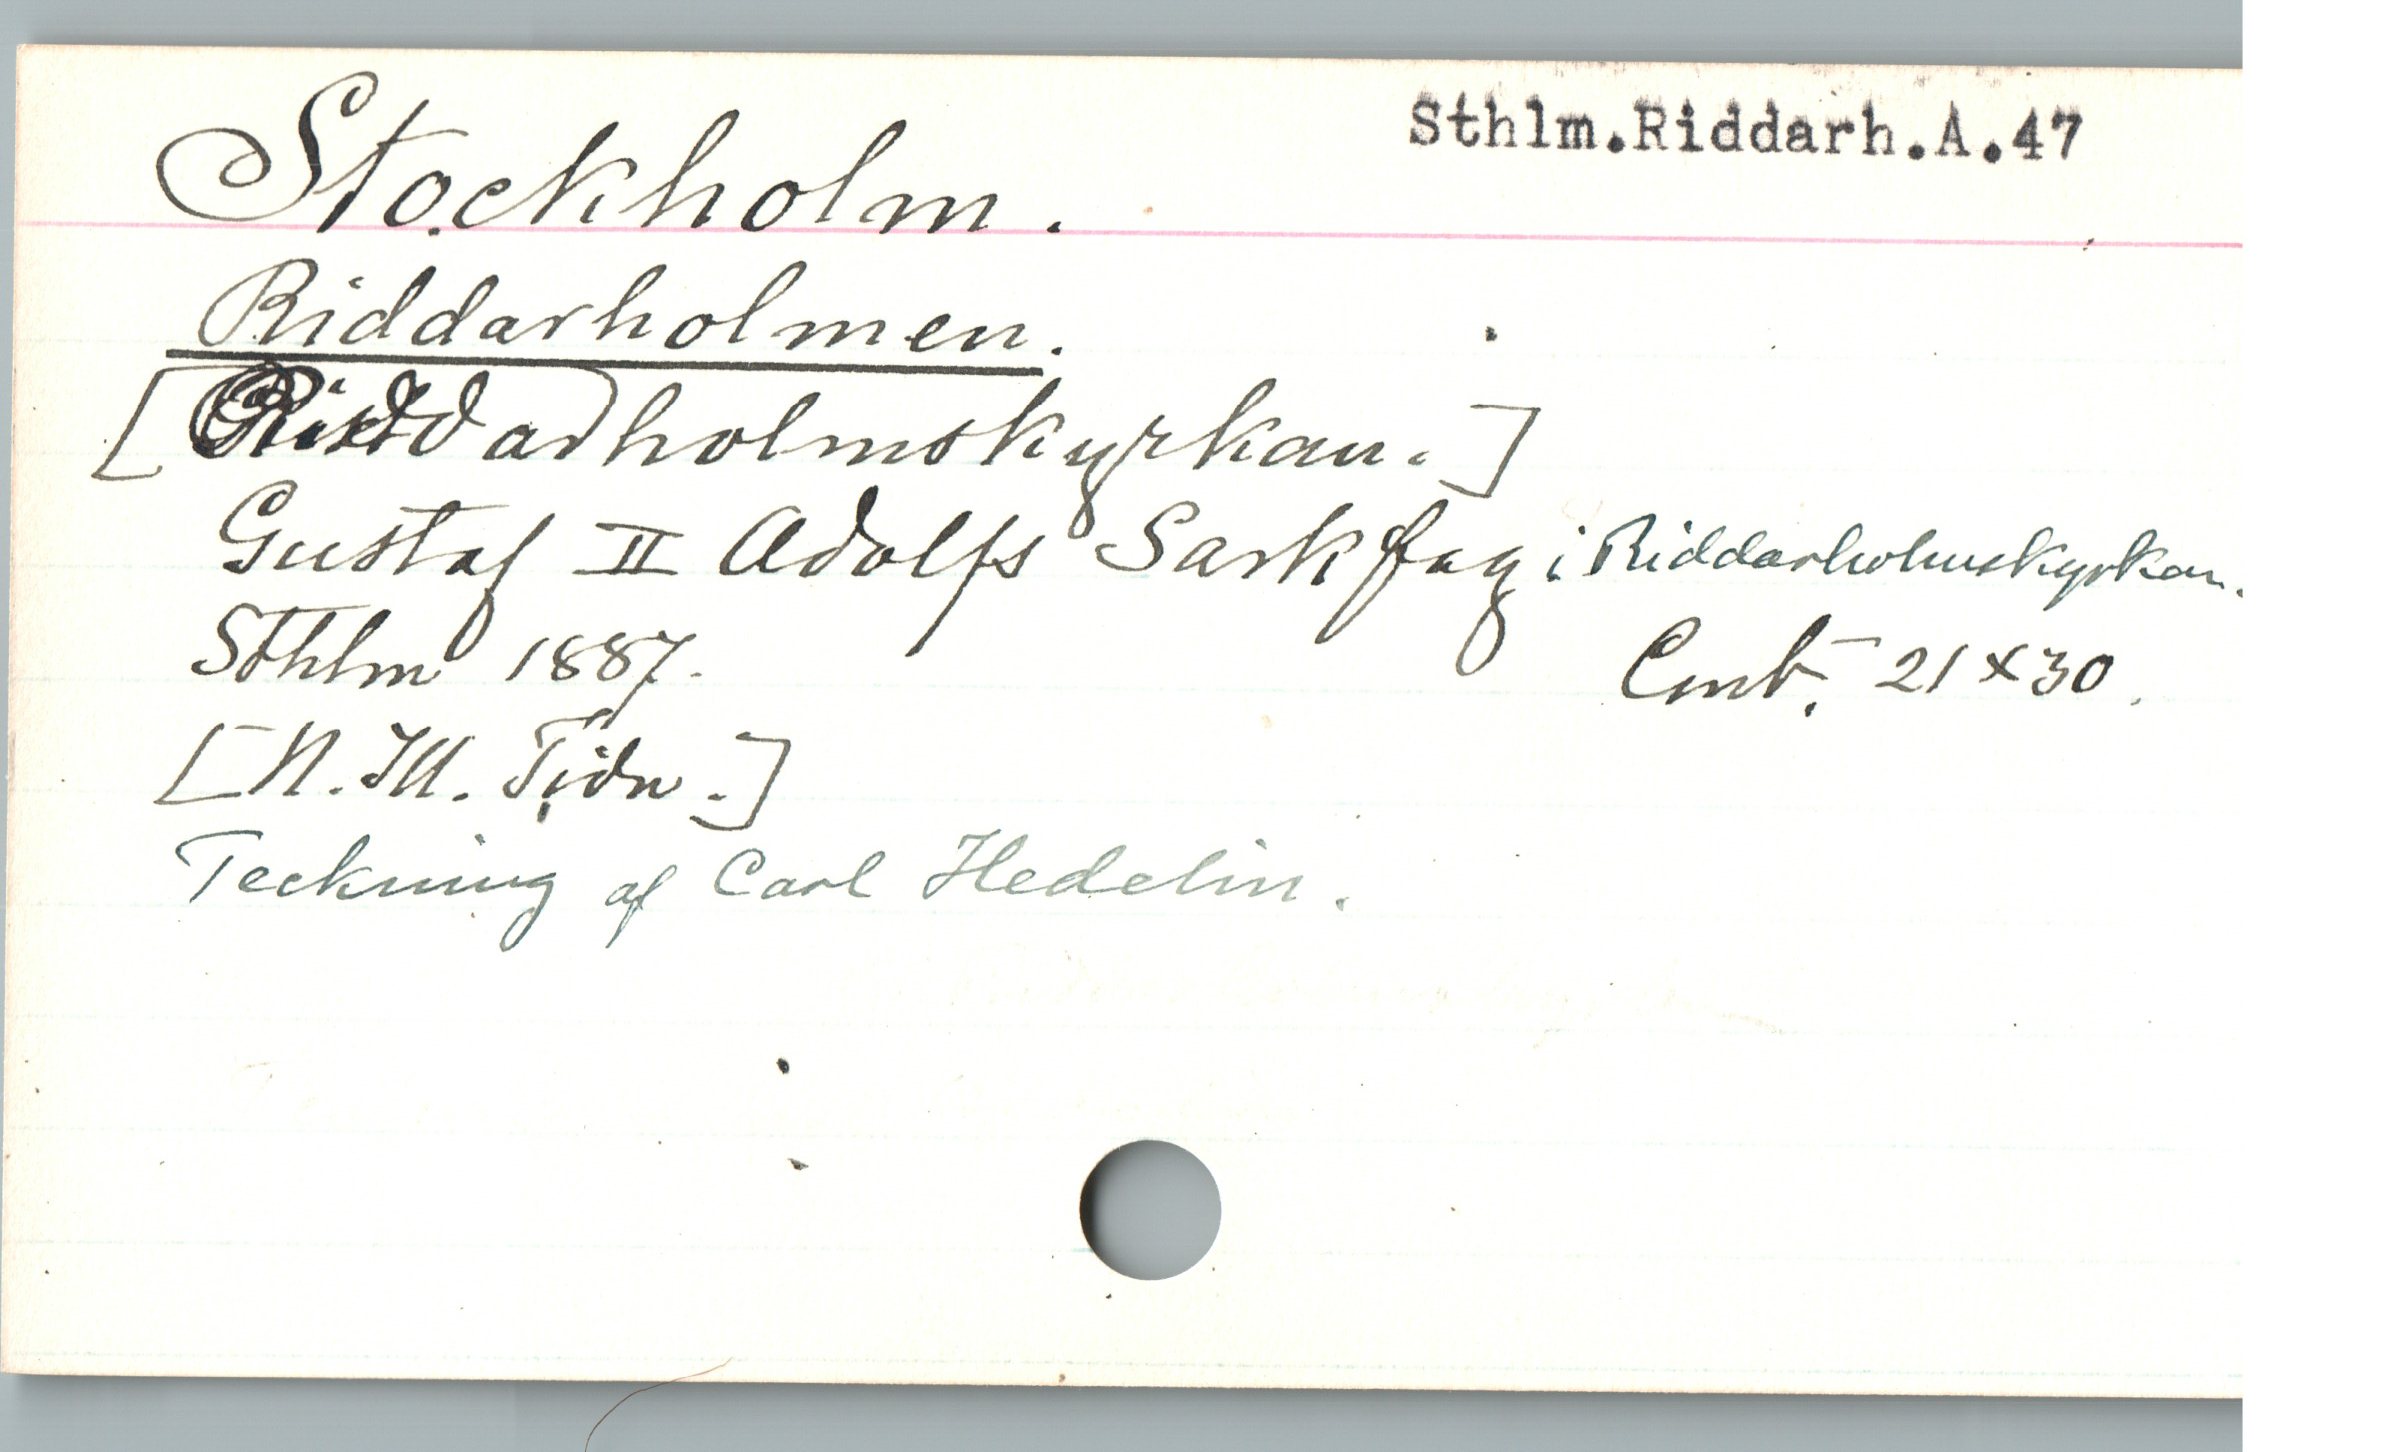 Sthlm.Riddarh.A.47
Stockholm.
Riddarholmen.
[Riddarholmskyrkan.]
Gustaf II Adolfs Sarkofag i Riddarholmskyrkan.
Sthlm 1887. 21 x 30.
[N. Ill. Tidn.]
Teckning af Carl Hedelin.